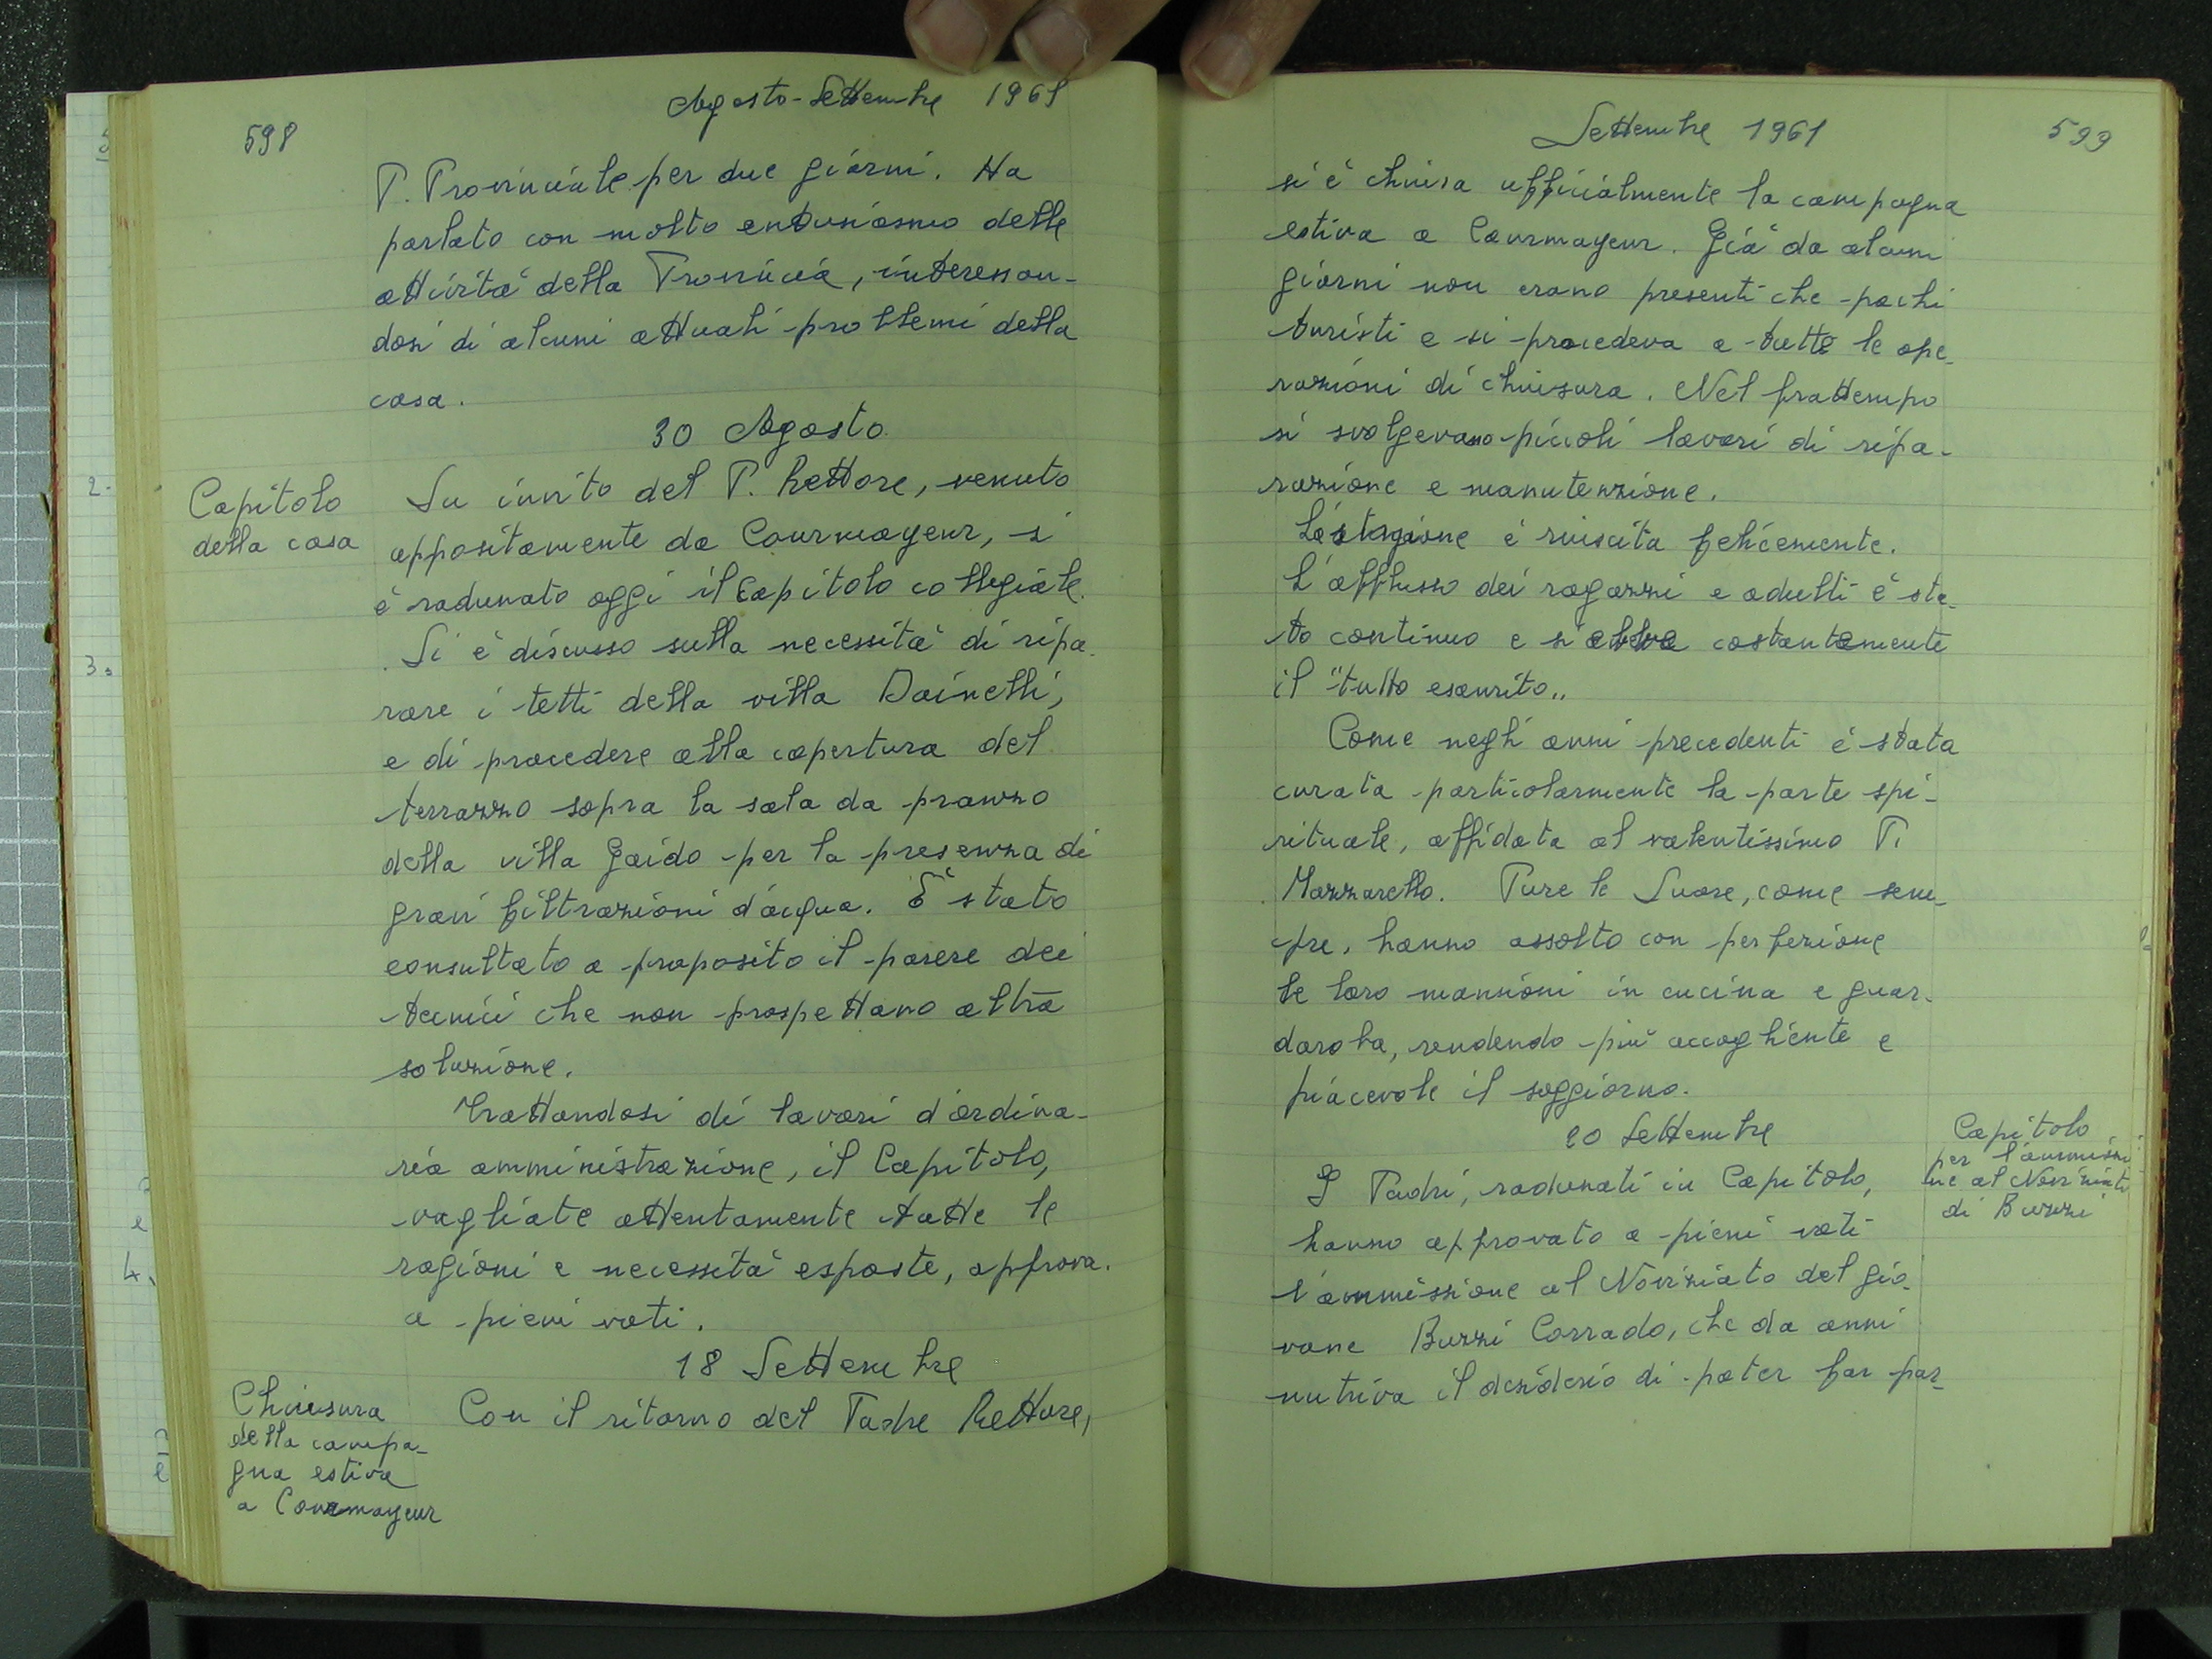 598
Agosto-Settembre 1961
P. Provinciale per due giorni. Ha
parlato con molto entusiasmo delle
attività della Provincia, interessan-
dosi di alcuni attuali problemi della
casa.
30 Agosto
Capitolo
della casa
Su invito del P. Rettore, venuto
appositamente da Courmayeur, si
è radunato oggi il Capitolo collegiale.
Si è discusso sulla necessità di ripa-
rare i tetti della villa Dainelli,
e di procedere alla copertura del
terrazzo sopra la sala da pranzo
della villa Gaido per la presenza di
gravi filtrazioni d'acqua. È stato
consultato a proposito il parere dei
tecnici che non prospettano altra
soluzione.
Trattandosi di lavori d'ordina-
ria amministrazione, il Capitolo,
vagliate attentamente tutte le
ragioni e necessità esposte, approva
a pieni voti.
18 Settembre
Chiusura
della campa-
gna estiva
a Courmayeur
Con il ritorno del Padre Rettore,
Settembre 1961
599
si è chiusa ufficialmente la campagna
estiva a Courmayeur. Già da alcuni
giorni non erano presenti che pochi
turisti e si procedeva a tutte le ope-
razioni di chiusura. Nel frattempo
si svolgevano piccoli lavori di ripa-
razione e manutenzione.
La stagione è riuscita felicemente.
L'afflusso dei ragazzi e adulti è sta-
to continuo e si ebbe costantemente
il "tutto esaurito„
Come negli anni precedenti è stata
curata particolarmente la parte spi-
rituale, affidata al valentissimo P.
Mazzarello. Pure le Suore, come sem-
pre, hanno assolto con perfezione
le loro mansioni in cucina e guar-
daroba, rendendo più accogliente e
piacevole il soggiorno.
20 Settembre
Capitolo
per l'ammissio
ne al Noviziato
di Buzzi
I Padri, radunati in Capitolo,
hanno approvato a pieni voti
l'ammissione al Noviziato del gio-
vane Buzzi Corrado, che da anni
nutriva il desiderio di poter far par-
2.
3.
4.